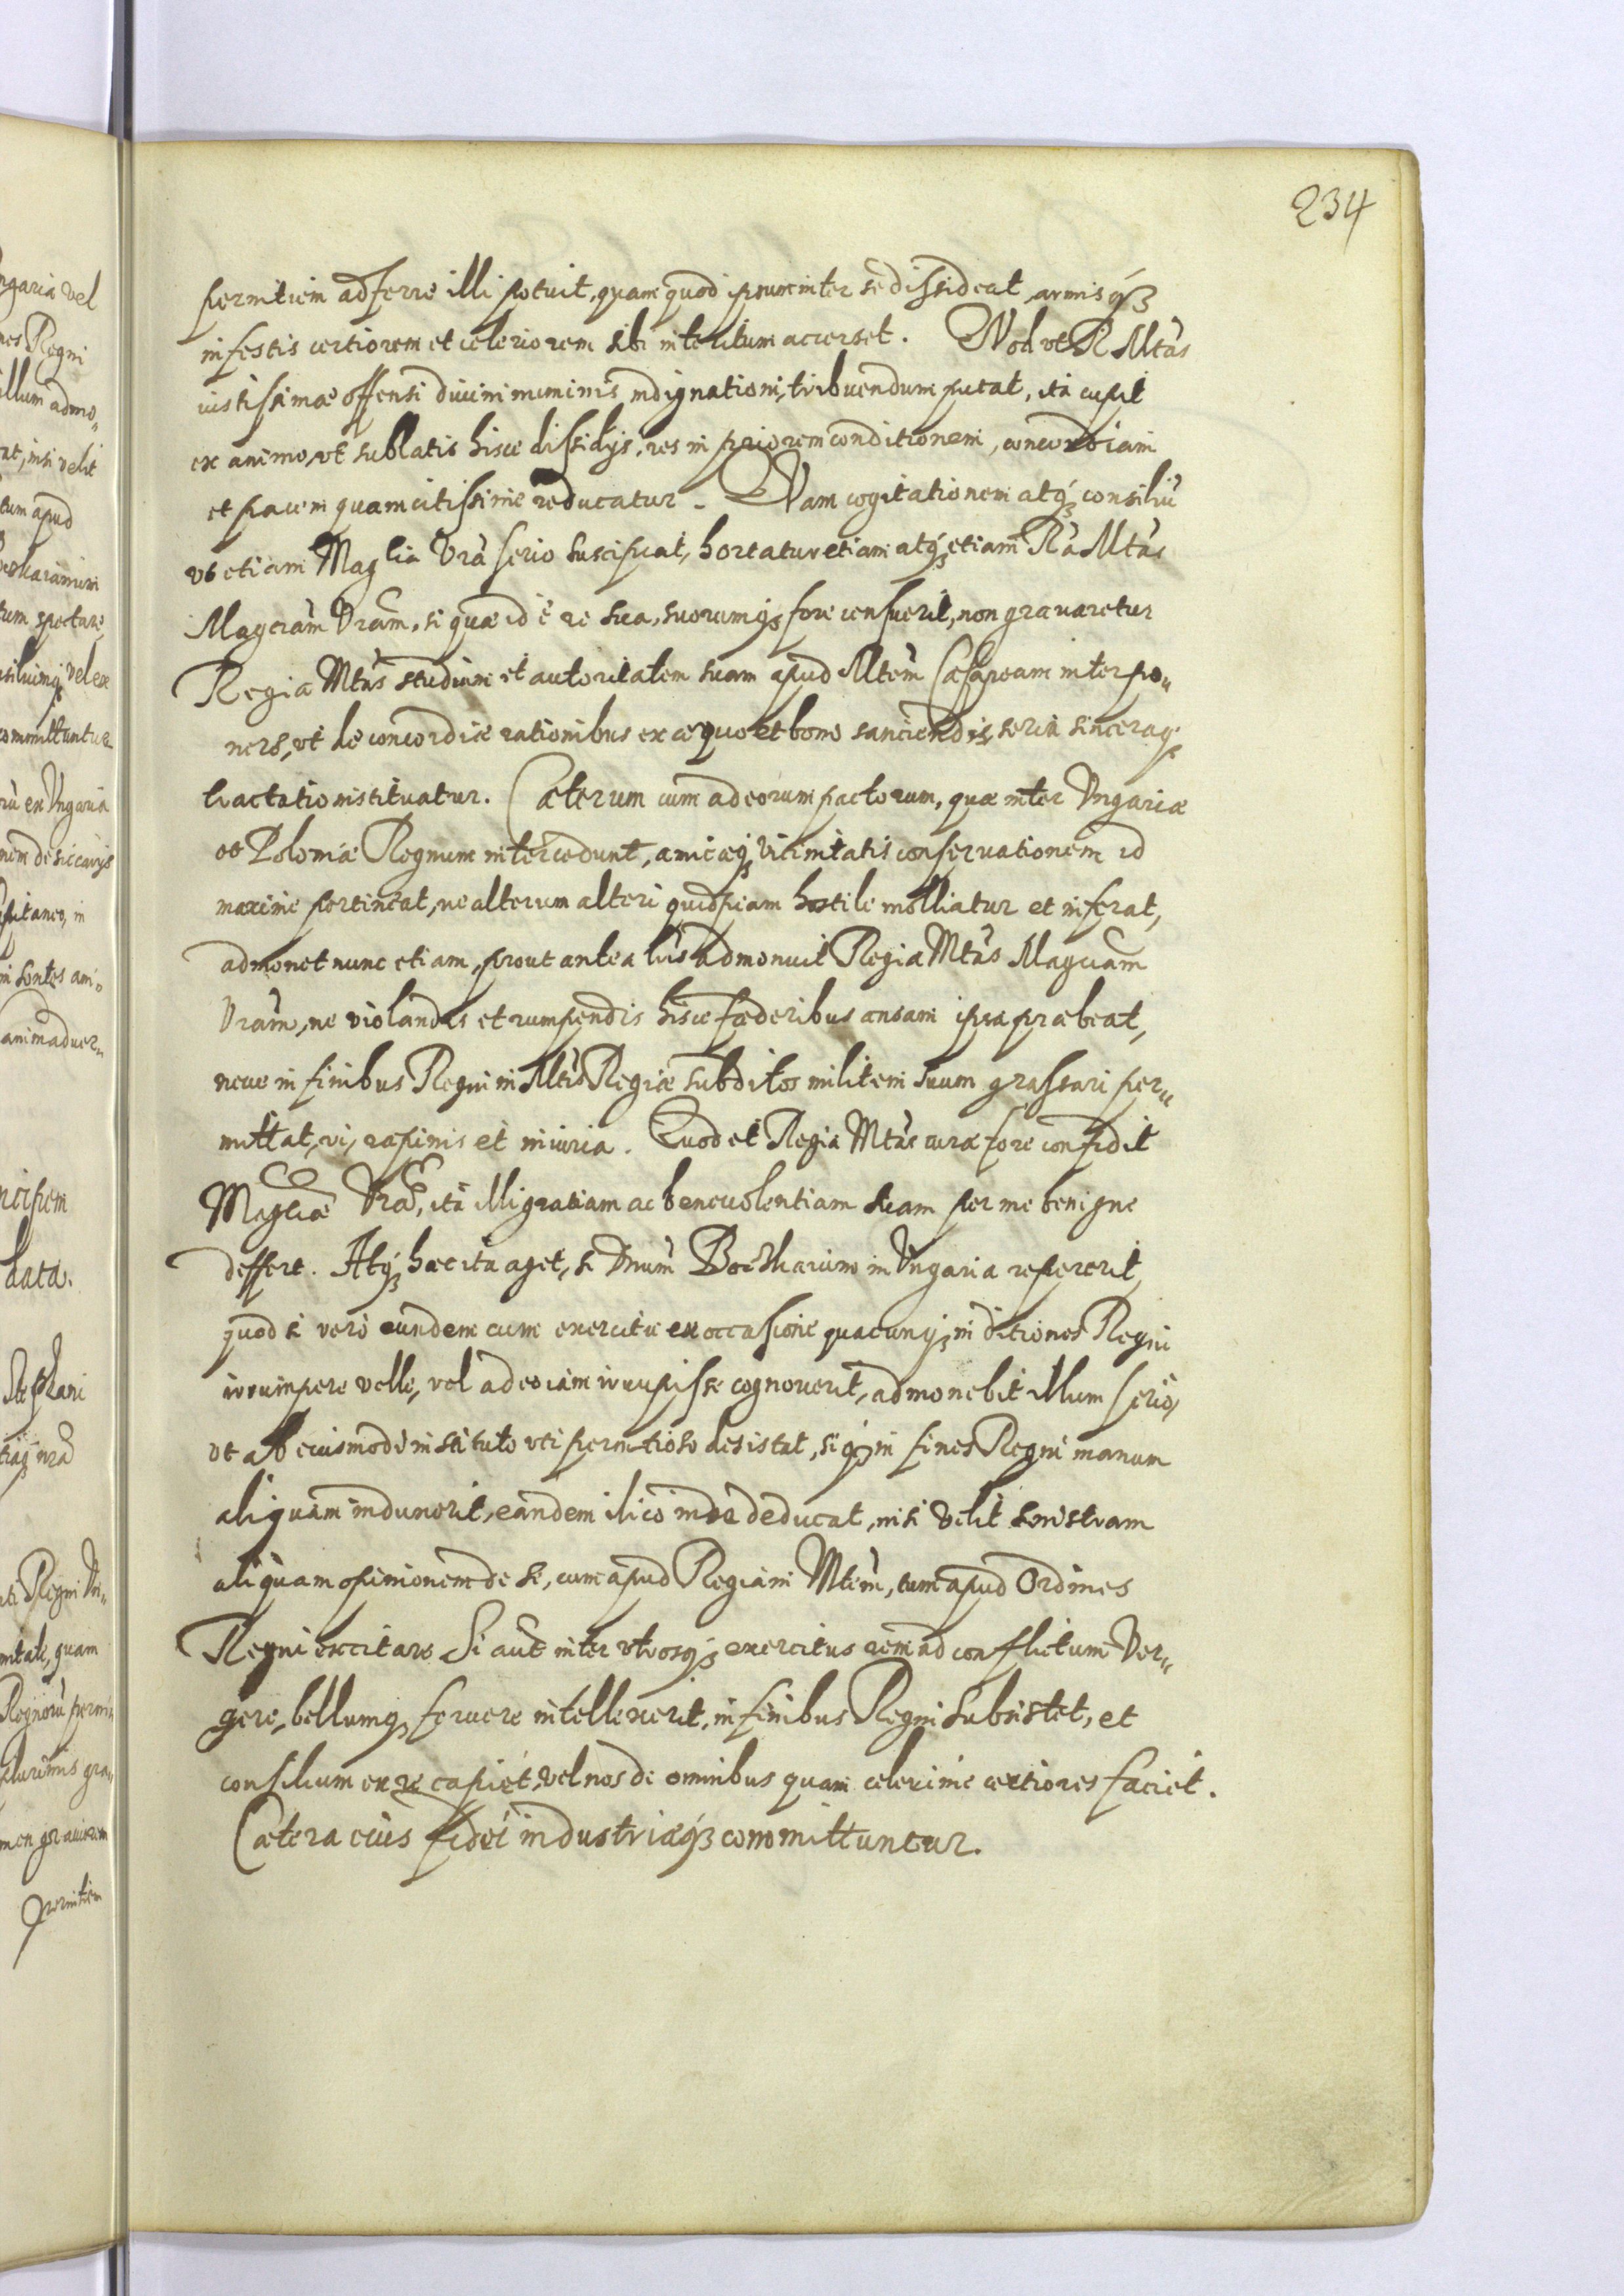 234
pernitiem adferre illi potuit, quam quod ipsum inter se dissideat armisq3
infestis certiorem et celeriorem sibi interitum accerset. Quod ut R Mtas
iustissimae offensi divini numinis indignationi, tribuendum putat, ita cupit
ex animo, ut sublatis hisce dissidys, res in priorem conditionem, concordiam
et pacem quam citissime reducatur. Quam cogitationem atq3 consiliu
ut etiam Mag lia Vra serio suscipiat, hortatur etiam atq3 etiam Ra Mtas
Magciam Vram, si quae id e re sua, suorumq3 fore censuerit, non gravaretur
Regia Mtas studium et autoritatem suam apud Mtem Caesaream interpo„
nere, ut de concordiae rationibus ex aequo et bono sanciendis, seria sinceraq3
tractatio instituatur. Caeterum cum ad eorum pactorum, quae inter Vngariae
et Poloniae Regnum intercedunt, amicaeq3 vicinitatis conservationem id
maxime pertineat, ne alterum alteri quidpiam hostile molliatur et inferat,
admonet nunc etiam, prout antea his admonuit Regia Mtas Magciam
Vram, ne violandis et rumpendis hisce foederibus ansam ipsa praebeat,
neve in finibus Regni in Mtis Regiae subditos militem suum grassari per„
mittat, vi, rapinis et iniuria. Quod et Regia Mtas curae fore confidit
Magciae Vrae, ita illi gratiam ac benevolentiam suam per me benigne
deffert. Atq3 haec ita aget, si Dnum Botskaium in Vngaria repererit,
quod si vero eundem cum exercitu ex occasione quacunq3 in ditiones Regni
irrumpere velle, vel adeo iam irrupisse cognoverit, admonebit illum serio,
ut ab eiusmodi instituto uti pernitioso desistat, si q3 in fines Regni manum
aliquam induxerit, eandem ilico inde deducat, nisi velit sinistram
aliquam opinionem de se, cum apud Regiam Mtem, tum apud Ordines
Regni excitare. Si aut inter utrosq3 exercitus rem ad conflictum ver„
gere, bellumq3 fervere intellexerit, in finibus Regni subsistet, et
consilium ex re capiet, vel nos de omnibus quam celerime certiores faciet.
Caetera eius fidei industriaeq3 committuntur.